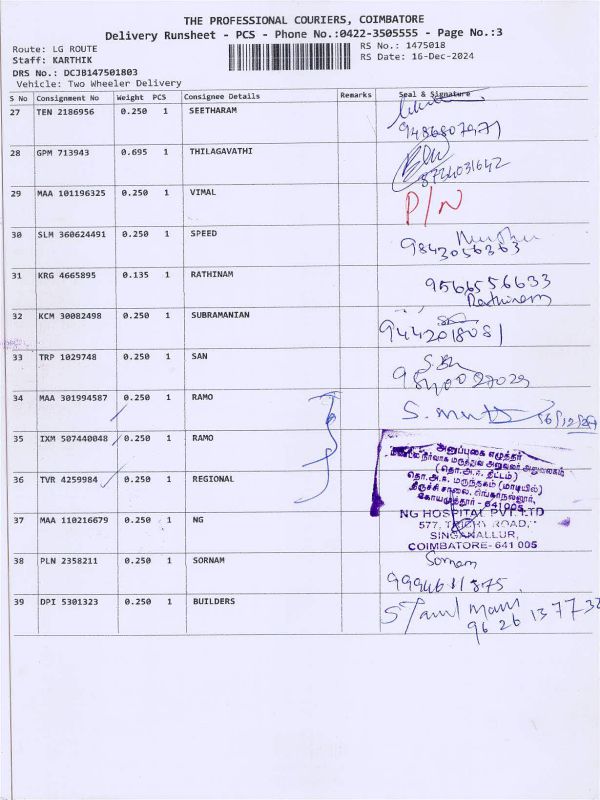 THE PROFESSIONAL COURIERS, COIMBATORE
Delivery Runsheet - PCS - Phone No.:0422-3505555 - Page No.:3
Route: LG ROUTE
RS No.: 1475018
Staff: KARTHIK
RS Date: 16-Dec-2024
DRS No.: DCJB147501803
Vehicle: Two Wheeler Delivery
S No Consignment No Weight PCS Consignee Details Remarks Seal & Signature
27 TEN 2186956 0.250 1 SEETHARAM
9486807971
28 GPM 713943 0.695 1 THILAGAVATHI
8724031642
29 MAA 101196325 0.250 1 VIMAL P/N
30 SLM 360624491 0.250 1 SPEED
9843056363
31 KRG 4665895 0.135 1 RATHINAM 9566556633
Rathinam
32 KCM 30082498 0.250 1 SUBRAMANIAN
9442018081
33 TRP 1029748 0.250 1 SAN
34 MAA 301994587 0.250 1 RAMO
16/12/24
35 IXM 507440048 0.250 1 RAMO
அனுப்புகை எழுத்தர்
36 TVR 4259984 0.250 1 REGIONAL
(தொ.அ.ஈ. திட்டம்)
தொ.அ.ஈ. மருந்தகம் (மாடியில்)
திருச்சி சாலை, சிங்காநல்லூர்,
கோயமுத்தூர் - 641005
37 MAA 110216679 0.250 1 NG
NG HOSPITAL PVT. LTD
577, TRICHY ROAD,
SINGANALLUR,
COIMBATORE- 641 005
38 PLN 2358211 0.250 1 SORNAM
Sornam
9994611875
39 DPI 5301323 0.250 1 BUILDERS